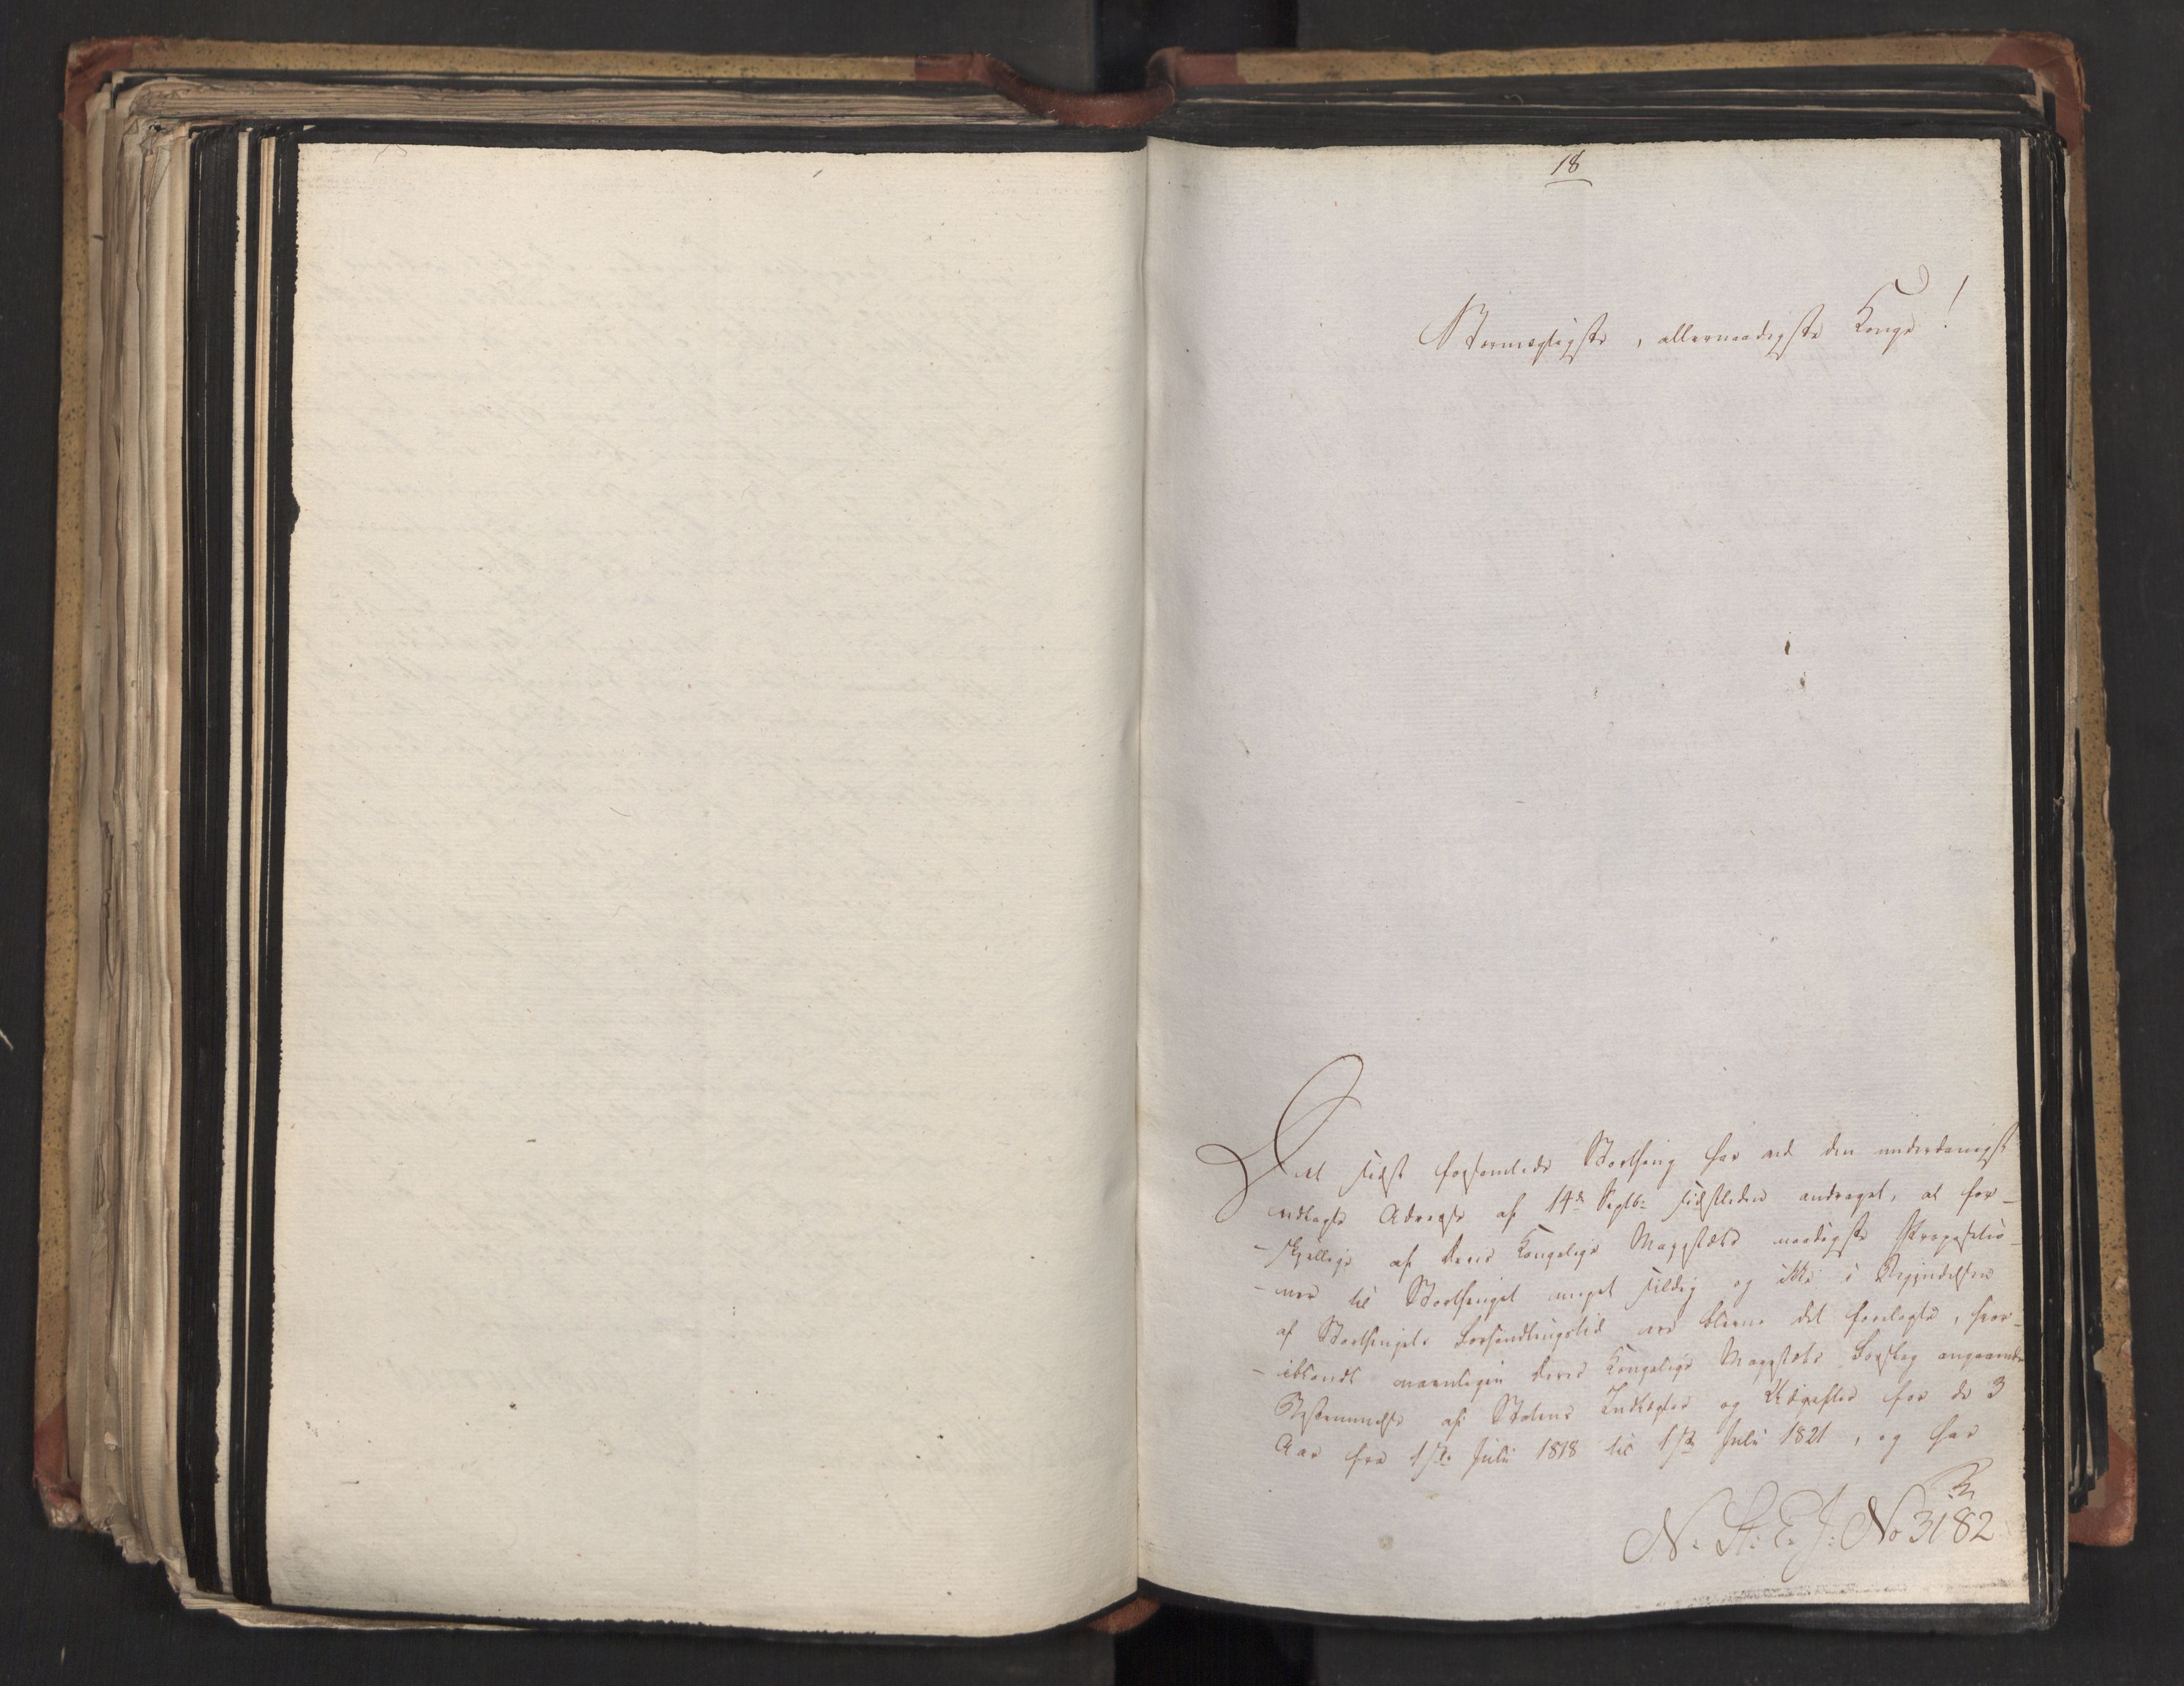 18
Stormægtigste, allernaadigste Konge!
Det sidst forsamlede Storthing har ved den underdanigst
vedlagte Adresse af 14de Septbr: sidstleden andraget, at for-
-skjellige af Deres Kongelige Majestæts naadigste Propositio-
-ner til Storthinget meget sildig og ikke i Begyndelsen
af Storthingets Forhandlingstid ere blevne det forelagte, hvor-
-iblandt navnligen Deres Kongelige Majestæts Forslag angaaende
Bestemmelse af Statens Indtægter og Udgifter for de 3
Aar fra 1ste Julii 1818 til 1ste Julii 1821, og har
N: St: E. J: No 3182